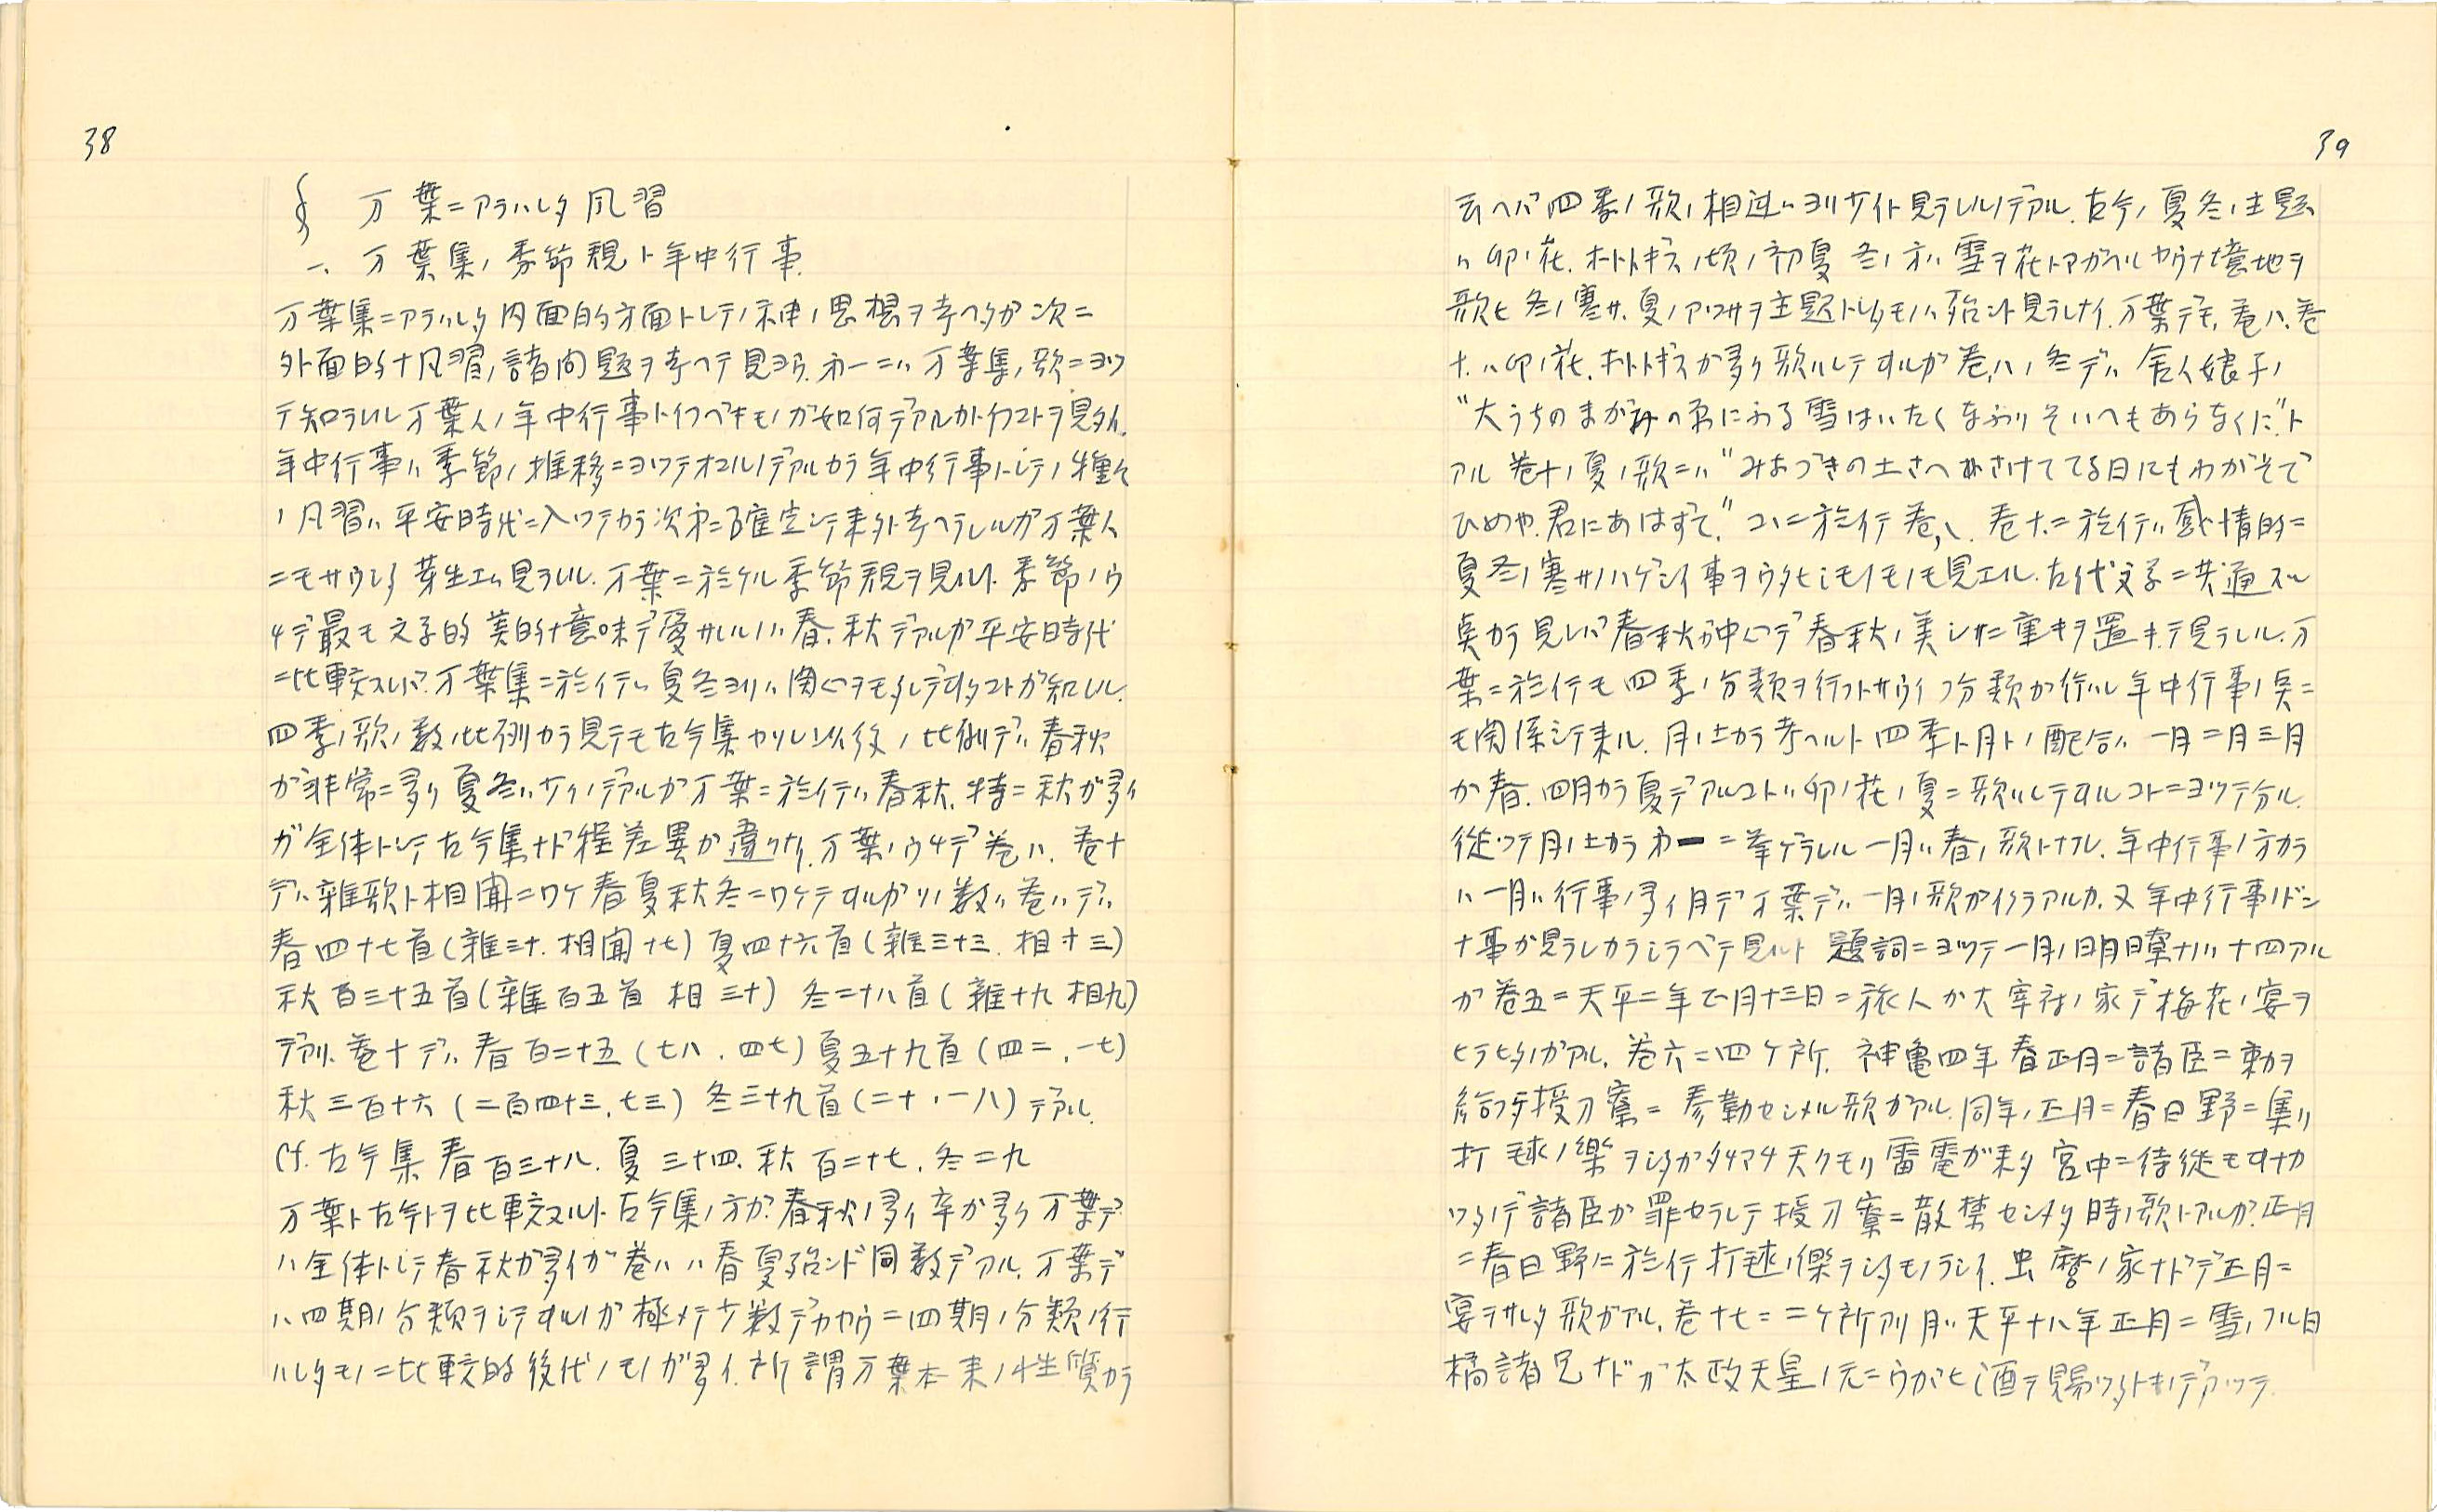 38
§ 万葉ニアラハレタ風習
一、万葉集ノ季節観ト年中行事.
万葉集ニアラハレタ内面的方面トシテノ神ノ思想ヲ考ヘタガ次ニ
外面的ナ風習ノ諸問題ヲ考ヘテ見ヨウ. 第一ニハ万葉集ノ歌ニヨツ
テ知ラレル万葉人ノ年中行事トイフベキモノガ如何デアルカトイフコトヲ見タイ.
年中行事ハ季節ノ推移ニヨツテオコルノデアルカラ年中行事トシテノ種々
ノ風習ハ平安時代ニ入ツテカラ次第ニ確定シテ来タト考ヘラレルガ万葉人
ニモサウシタ芽生エハ見ラレル. 万葉ニ於ケル季節観ヲ見ルト季節ノウ
チデ最モ文学的美的ナ意味デ愛サレルノハ春.秋デアルガ平安時代
ニ比較スレバ万葉集ニ於イテハ夏冬ヨリハ関心ヲモタレテヰタコトガ知レル.
四季ノ歌ノ数ノ比例カラ見テモ古今集ヤソレ以後ノ比例デハ春秋
ガ非常ニ多ク夏冬ハ少イノデアルガ万葉ニ於イテハ春秋.特ニ秋ガ多イ
ガ全体トシテ古今集ナド程差異ガ違ハナイ.万葉ノウチデ巻八.巻十
デハ雑歌ト相聞ニワケ春夏秋冬ニワケテヰルガソノ数ハ巻八デハ
春四十七首(雑三十.相聞十七)夏四十六首(雑三十三.相十三)
秋百三十五首(雑百五首 相三十) 冬二十八首(雑十九 相九)
デアリ.巻十デハ春百二十五(七八.四七)夏五十九首(四二.一七)
秋三百十六(二百四十三.七三)冬三十九首(二十.一八)デアル.
Cf.古今集春百三十八.夏三十四.秋百二十七.冬二九
万葉ト古今トヲ比較スルト古今集ノ方ガ春秋ノ多イ率ガ多ク万葉デ
ハ全体トシテ春秋ガ多イガ巻八ハ春夏殆ンド同数デアル.万葉デ
ハ四期ノ分類ヲシテヰルノガ極メテ少数デカヤウニ四期ノ分類ノ行
ハレタモノニ比較的後代ノモノガ多イ.所謂万葉本来ノ性質カラ
39
云ヘバ四季ノ歌ノ相違ハヨリ少イト見ラレルノデアル.古今ノ夏冬ノ主題
ハ卯ノ花.ホトトギスノ頃ノ初夏 冬ノ方ハ雪ヲ花トマガヘルヤウナ境地ヲ
歌ヒ冬ノ寒サ.夏ノアツサヲ主題トシタモノハ殆ンド見ラレナイ.万葉デモ.巻八.巻
十.ハ卯ノ花.ホトトギスガ多ク歌ハレテヰルガ巻八ノ冬デハ舎人娘子ノ
“大うちのまがみの原にふる雪はいたくなふりそいへもあらなくに”ト
アル 巻十ノ夏ノ歌ニハ“みなづきの土さへわさけててる日にもわがそで
ひめや.君にあはずて.” コレニ於イテ巻八.巻十.ニ於イテハ感情的ニ
夏冬ノ寒サノハゲシイ事ヲウタヒシモノモノモ見エル.古代文学ニ共通スル
点カラ見レバ春秋ガ中心デ春秋ノ美シサニ重キヲ置キテ見ラレル.万
葉ニ於イテモ四季ノ分類ヲ行フトサウイフ分類ガ行ハレ年中行事ノ点ニ
モ関係シテ来ル. 月ノ上カラ考ヘルト四季ト月トノ配合ハ一月二月三月
ガ春.四月カラ夏デアルコトハ卯ノ花ノ夏ニ歌ハレテヰルコトニヨツテ分ル.
従ツテ月ノ上カラ第一ニ挙ゲラレル一月ハ春ノ歌トナル.年中行事ノ方カラ
ハ一月ハ行事ノ多イ月デ万葉デハ一月ノ歌ガイクラアルカ.又年中行事ノドン
ナ事ガ見ラレルカラシラベテ見ルト 題詞ニヨツテ一月ノ日明瞭ナノハ十四アル
ガ巻五ニ天平二年正月十三日ニ旅人ガ大宰府ノ家デ梅花ノ宴ヲ
ヒラヒタノガアル.巻六ニ四ケ所.神亀四年春正月ニ諸臣ニ勅ヲ
給ウテ授刀寮ニ参勤センメル歌ガアル.同年ノ正月ニ春日野ニ集リ
打毬ノ楽ヲシタガタチマチ天クモリ雷電ガ来タ宮中ニ侍従モヰナカ
ツタノデ諸臣ガ罪セラレテ授刀寮ニ散禁センメタ時ノ歌トアルガ正月
ニ春日野ニ於イテ打毬ノ楽ヲシタモノラシイ.虫麿ノ家ナドデ正月ニ
宴ヲサレタ歌ガアル.巻十七ニ二ケ所アリ月ハ天平十八年正月ニ雪ノフル日
橘諸兄ナドガ太政天皇ノ元ニウカヒ酒ヲ賜ツタトキノデアツテ.